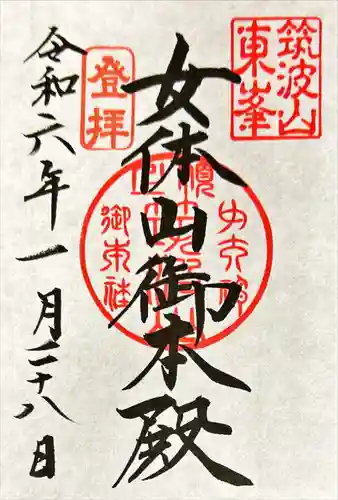 筑波山
東峯
女体山御本殿
登拝
令和六年一月二十八日